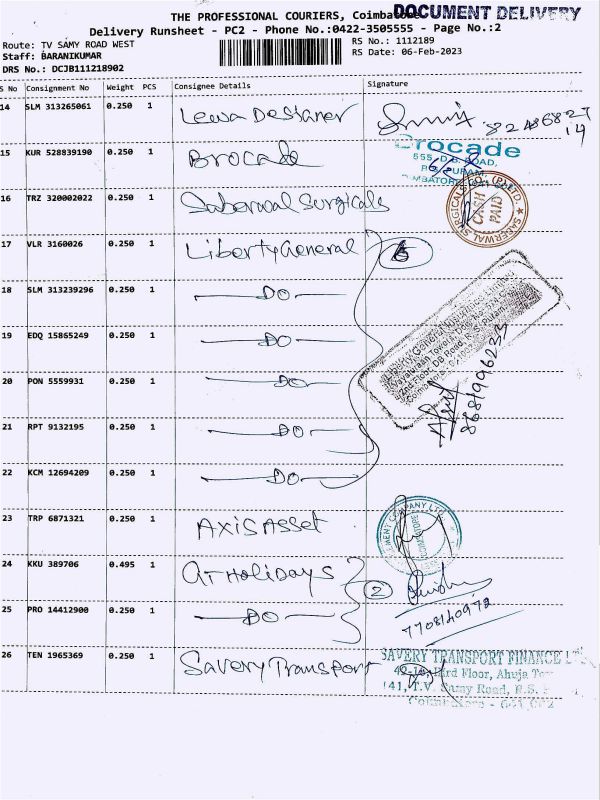 THE PROFESSIONAL COURIERS, Coimbatore
DOCUMENT DELIVERY
Delivery Runsheet - PC2 - Phone No.:0422-3505555 - Page No.:2
Route: TV SAMY ROAD WEST
RS No.: 1112189
Staff: BARANIKUMAR
RS Date: 06-Feb-2023
DRS No.: DCJB111218902
S No Consignment No Weight PCS Consignee Details Signature
14 SLM 313265061 0.250 1
82486827
14
15 KUR 528839190 0.250 1 Brocade
Brocade
555, D.B. ROAD,
R.S. PURAM
16 TRZ 320002022 0.250 1 Saberwal Surgicals
SABERWAL SURGICALS CO. (P) LTD.
CASH
PAID
17 VLR 3160026 0.250 1 Liberty General 6
18 SLM 313239296 0.250 1 DO
19 EDQ 15865249 0.250 1 DO
20 PON 5559931 0.250 1 DO
21 RPT 9132195 0.250 1 DO
22 KCM 12694209 0.250 1 DO
Liberty General Insurance Limited
2nd Floor, DB Road, R.S. Puram
8681996233
23 TRP 6871321 0.250 1 Axis Asset
COIMBATORE
24 KKU 389706 0.495 1 GT Holidays 2
25 PRO 14412900 0.250 1 DO
7708140972
26 TEN 1965369 0.250 1 Savery Transport
SAVERY TRANSPORT FINANCE
Floor, Ahuja
141, T.V. Samy Road, R.S.